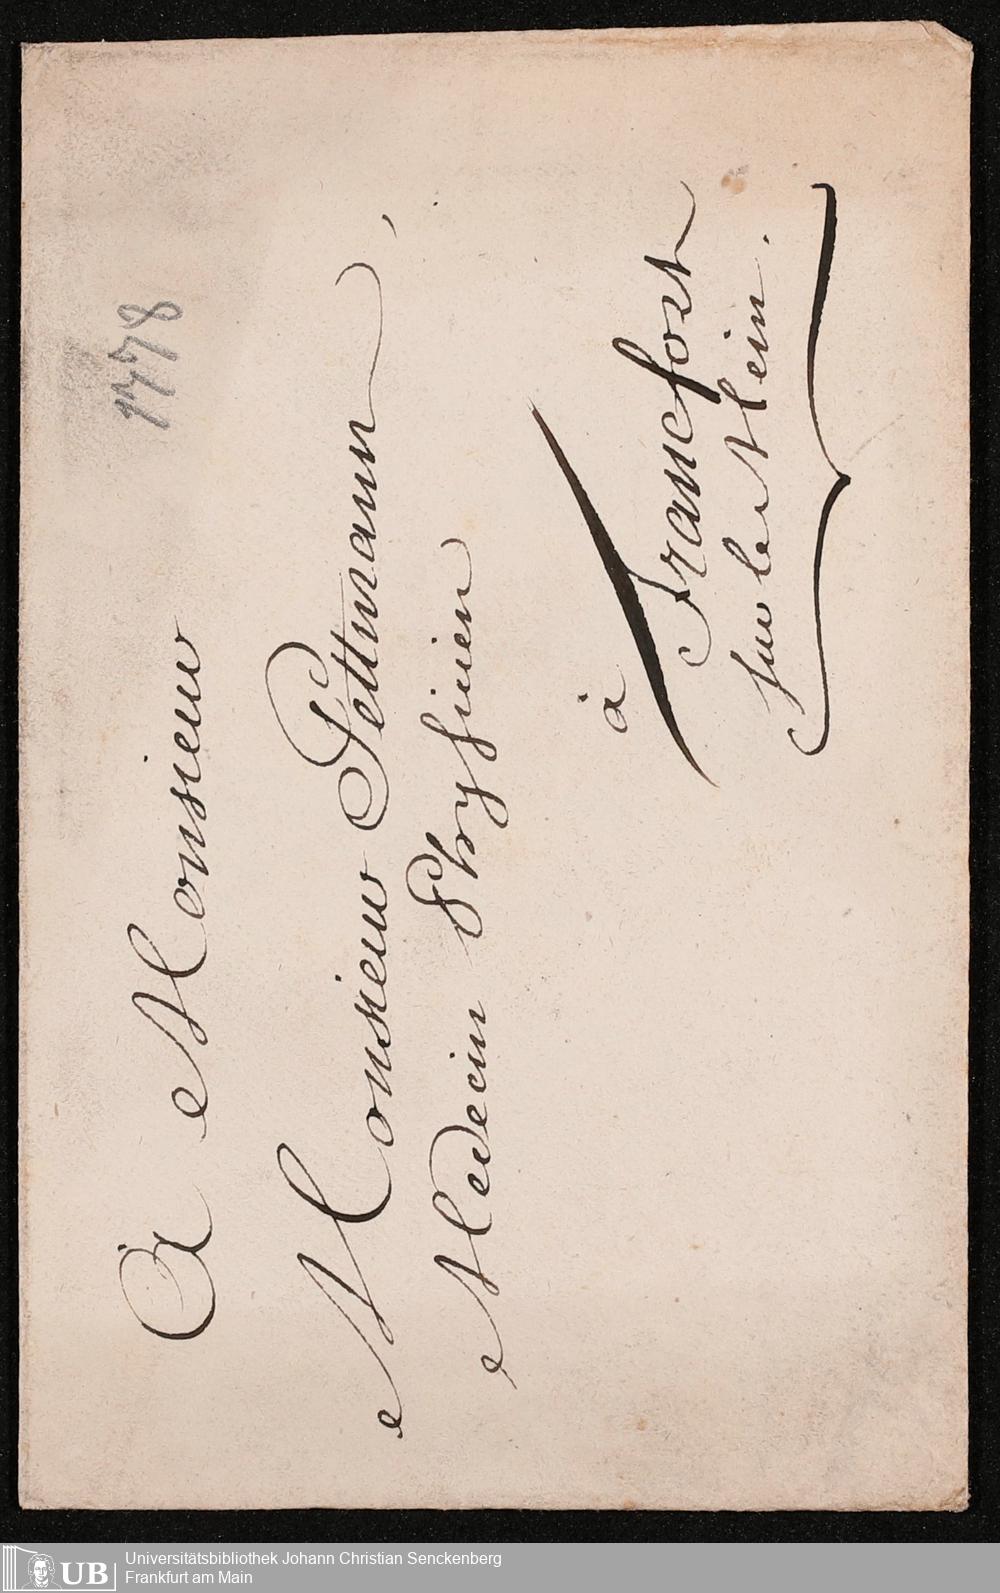 1778
à Monsieur
Monsieur Pettmann,
Medecin Physicien
à
Francfort
sur le Mein.
Universitätsbibliothek Johann Christian Senckenberg
Frankfurt am Main
UB